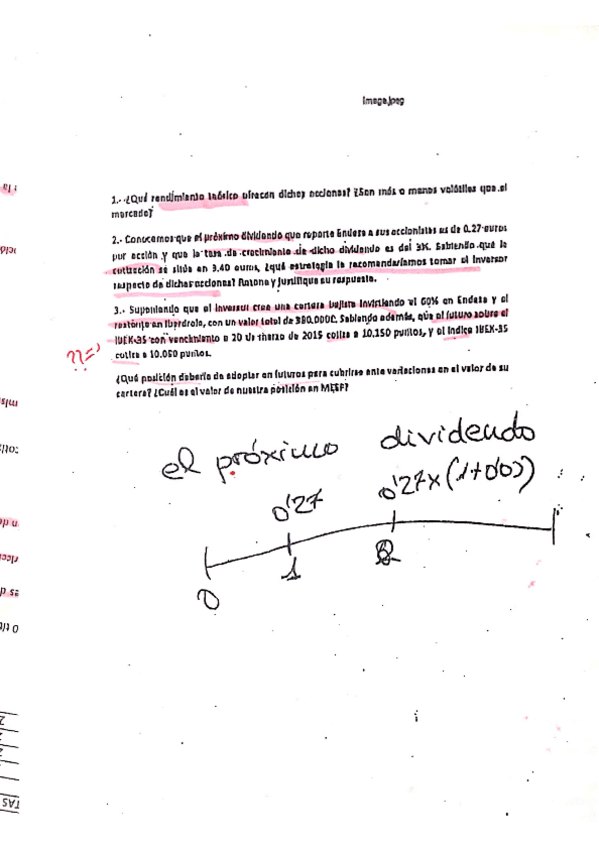 Image.jpeg
1.- ¿Qué rendimiento teórico ofrecen dichas acciones? ¿Son más o menos volátiles que el
mercado?
2.- Conocemos que el próximo dividendo que reporte Endesa a sus accionistas es de 0.27 euros
por acción y que la tasa de crecimiento de dicho dividendo es del 3%. Sabiendo que la
cotización se sitúa en 3.40 euros, ¿qué estrategia le recomendaríamos tomar al inversor
respecto de dichas acciones? Razone y justifique su respuesta.
3.- Suponiendo que el inversor crea una cartera bajista invirtiendo el 60% en Endesa y el
restante en Iberdrola, con un valor total de 380.000€. Sabiendo además, que el futuro sobre el
IBEX-35 con vencimiento a 20 de marzo de 2015 cotiza a 10.150 puntos, y el índice IBEX-35
??=>
cotiza a 10.050 puntos.
¿Qué posición debería de adoptar en futuros para cubrirse ante variaciones en el valor de su
cartera? ¿Cuál es el valor de nuestra posición en MEFF?
el próximo dividendo
0'27 0'27x(1+0'03)
0 1 2